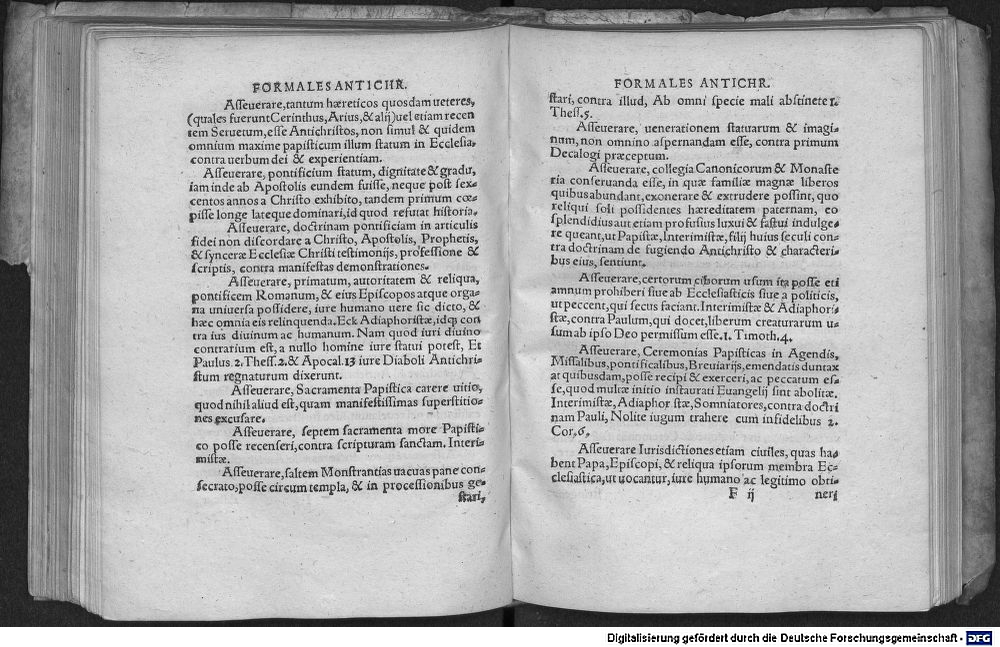 FORMALES ANTICHR.
Aſſeuerare, tantum hæreticos quosdam ueteres,
(quales fuerunt Cerinthus, Arius, & alij) uel etiam recen
tem Seruetum, eſſe Antichriſtos, non ſimul & quidem
omnium maxime papiſticum illum ſtatum in Eccleſia,
contra uerbum dei & experientiam.
Aſſeuerare, pontificium ſtatum, dignitatē & gradū,
iam inde ab Apoſtolis eundem fuiſſe, neque poſt ſex-
centos annos a Chriſto exhibito, tandem primum cœ-
piſſe longe lateque dominari, id quod refutat hiſtoria.
Aſſeuerare, doctrinam pontificiam in articulis
fidei non diſcordare a Chriſto, Apoſtolis, Prophetis,
& ſynceræ Eccleſiæ Chriſti teſtimonijs, profeſſione &
ſcriptis, contra manifeſtas demonſtrationes.
Aſſeuerare, primatum, autoritatem & reliqua,
pontificem Romanum, & eius Epiſcopos atque orga-
na uniuerſa poſſidere, iure humano uere ſic dicto, &
hæc omnia eis relinquenda. Eck Adiaphoriſtæ, idq; con
tra ius diuinum ac humanum. Nam quod iuri diuino
contrarium eſt, a nullo homine iure ſtatui poteſt, Et
Paulus 2. Theſſ. 2. & Apocal. 13 iure Diaboli Antichri-
ſtum regnaturum dixerunt.
Aſſeuerare, Sacramenta Papiſtica carere uitio,
quod nihil aliud eſt, quam manifeſtiſſimas ſuperſtitio-
nes excuſare.
Aſſeuerare, ſeptem ſacramenta more Papiſti-
co poſſe recenſeri, contra ſcripturam ſanctam. Interi-
miſtæ.
Aſſeuerare, ſaltem Monſtrantias uacuas pane con-
ſecrato, poſſe circum templa, & in proceſſionibus ge-
ſtari,
FORMALES ANTICHR.
ſtari, contra illud, Ab omni ſpecie mali abſtinete 1.
Theſſ. 5.
Aſſeuerare, uenerationem ſtatuarum & imagi-
num, non omnino aſpernandam eſſe, contra primum
Decalogi præceptum.
Aſſeuerare, collegia Canonicorum & Monaſte
ria conſeruanda eſſe, in quæ familiæ magnæ liberos
quibus abundant, exonerare & extrudere poſſint, quo
reliqui ſoli poſſidentes hæreditatem paternam, eo
ſplendidius aut etiam profuſius luxui & faſtui indulge-
re queant, ut Papiſtæ, Interimiſtæ, filij huius ſeculi con-
tra doctrinam de fugiendo Antichriſto & characteri-
bus eius, ſentiunt.
Aſſeuerare, certorum ciborum uſum ita poſſe eti
amnum prohiberi ſiue ab Eccleſiaſticis ſiue a politicis,
ut peccent, qui ſecus faciant. Interimiſtæ & Adiaphori-
ſtæ, contra Paulum, qui docet, liberum creaturarum u-
ſum ab ipſo Deo permiſſum eſſe. 1. Timoth. 4.
Aſſeuerare, Ceremonias Papiſticas in Agendis,
Miſſalibus, pontificalibus, Breuiarijs, emendatis duntax
at quibuſdam, poſſe recipi & exerceri, ac peccatum eſ-
ſe, quod multæ initio inſtaurati Euangelij ſint abolitæ.
Interimiſtæ, Adiaphor ſtæ, Somniatores, contra doctri
nam Pauli, Nolite iugum trahere cum infidelibus 2.
Cor. 6.
Aſſeuerare Iurisdictiones etiam ciuiles, quas ha-
bent Papa, Epiſcopi, & reliqua ipſorum membra Ec-
cleſiaſtica, ut uocantur, iure humano ac legitimo obti-
F ij neri
Digitalisierung gefördert durch die Deutsche Forschungsgemeinschaft - DFG